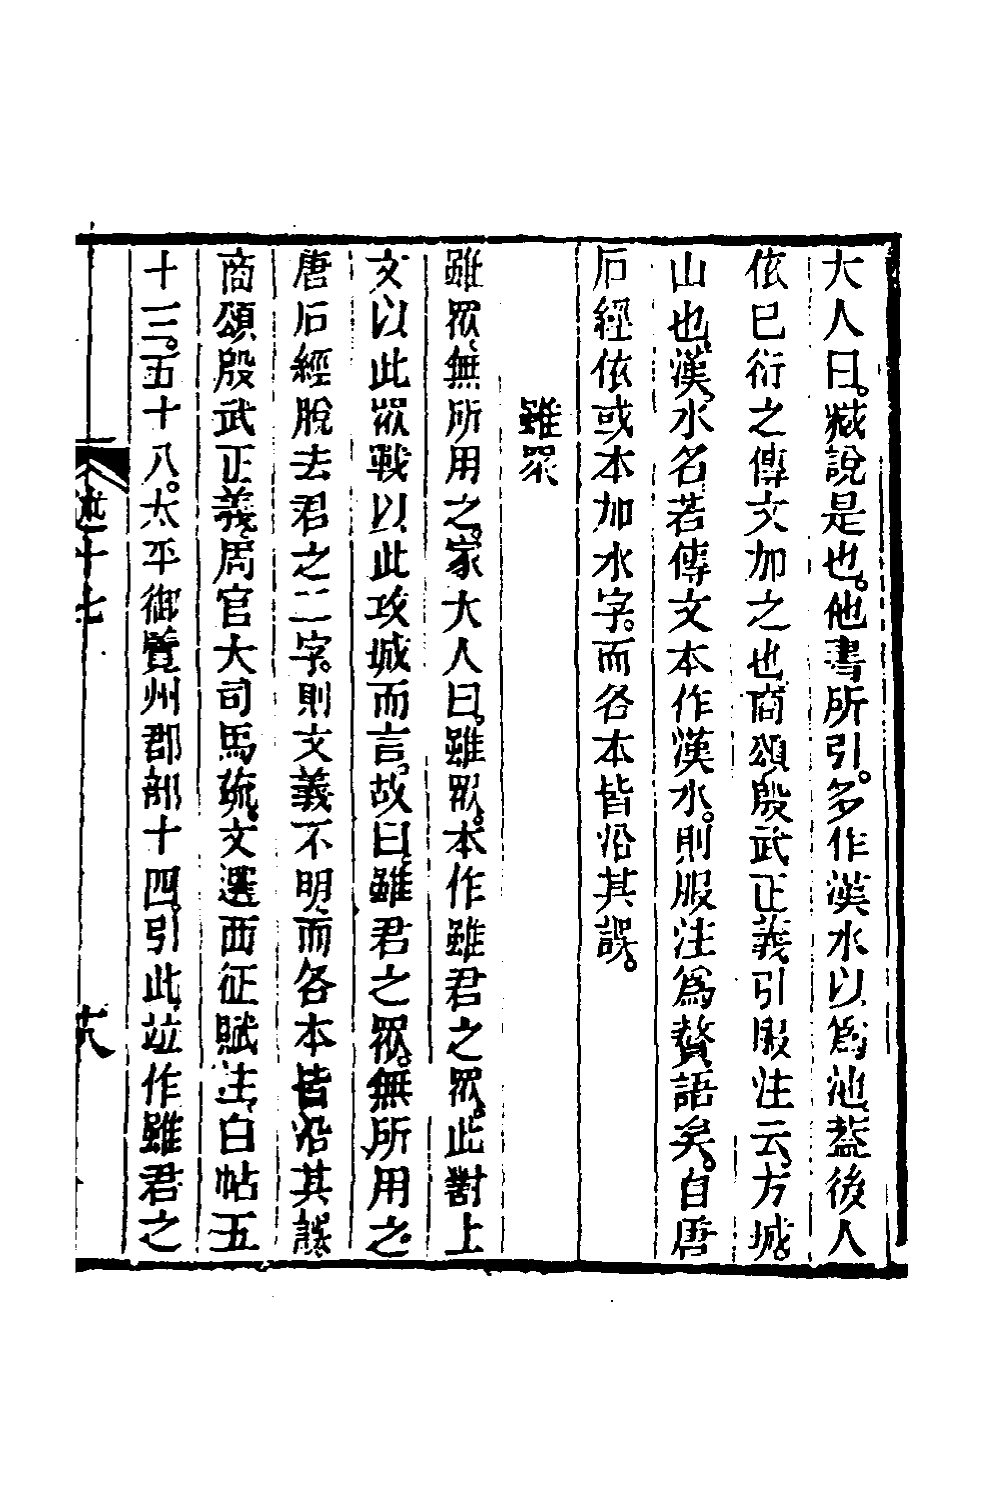 大人曰。臧說是也。他書所引。多作漢水以爲池。葢後人
依已衍之傳文加之也。商頌殷武正義引服注云。方城。
山也。漢。水名。若傳文本作漢水。則服注爲贅語矣。自唐
石經依或本加水字。而各本皆沿其誤。
雖眾
雖眾。無所用之。家大人曰。雖眾。本作雖君之眾。此對上
文以此眾戰以此攻城而言。故曰。雖君之眾。無所用之。
唐石經脫去君之二字。則文義不明。而各本皆沿其誤。
商頌殷武正義。周官大司馬疏。文選西征賦注。白帖五
十三。五十八。太平御覽州郡部十四。引此。竝作雖君之
述十七
十八